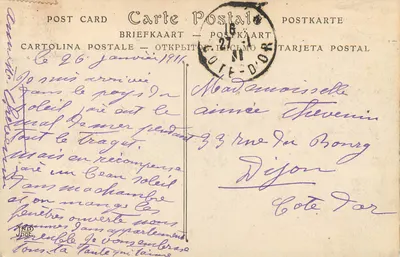 POST CARD Carte Postale POSTKARTE
BRIEFKAART — POSTKAART
CARTOLINA POSTALE — ОТКРЫТОЕ ПИСЬМО TARJETA POSTAL
16
27-1
11
COTE-D'OR
le 26 janvier 1911
Je suis arrivée
dans le pays du
soleil j'ai eut le
mal de mer pendant
tout le traget.
mais en récompense
j'ai un beau soleil
dans ma chambre
et on mange les
fenêtres ouverte nous
sommes dans appartement
ensemble Je vous embrasse
tous ta tante qui t'aime
Mademoiselle
aimée Thevenin
33 rue du Bourg
Dijon
Cote d'or